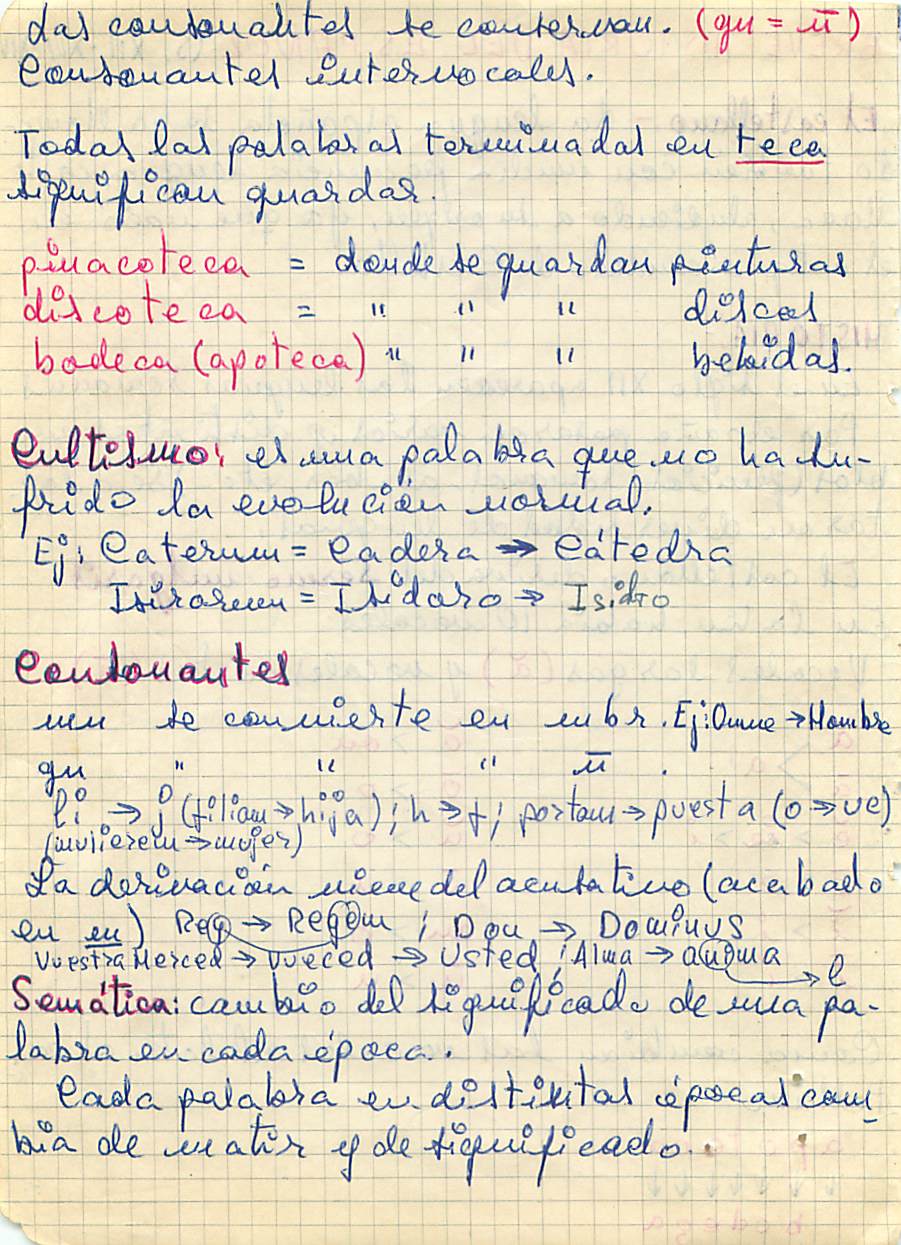 Las consonantes se conservan. (gn = ñ)
Consonantes intervocales.
Todas las palabras terminadas en teca
significan guardar.
pinacoteca = donde se guardan pinturas
discoteca = " " " discos
bodeca (apoteca) " " " bebidas.
Cultismo: es una palabra que no ha su-
frido la evolución normal.
Ej: Caterum = Cadera → Cátedra
Isirorum = Isidoro → Isidro
Consonantes
mn se convierte en mbr. Ej: Omne → Hombre
gn " " " ñ .
li → j (filiam → hija); h → f; portam → puesta (o → ue)
(mulierem → mujer)
La derivación viene del acusativo (acabado
en m) Rey → Regem ; Don → Dominus
Vuestra Merced → Vueced → Usted ; Alma → anima → l
Semática: cambio del significado de una pa-
labra en cada época.
Cada palabra en distintas épocas cam
bia de matiz y de significado.